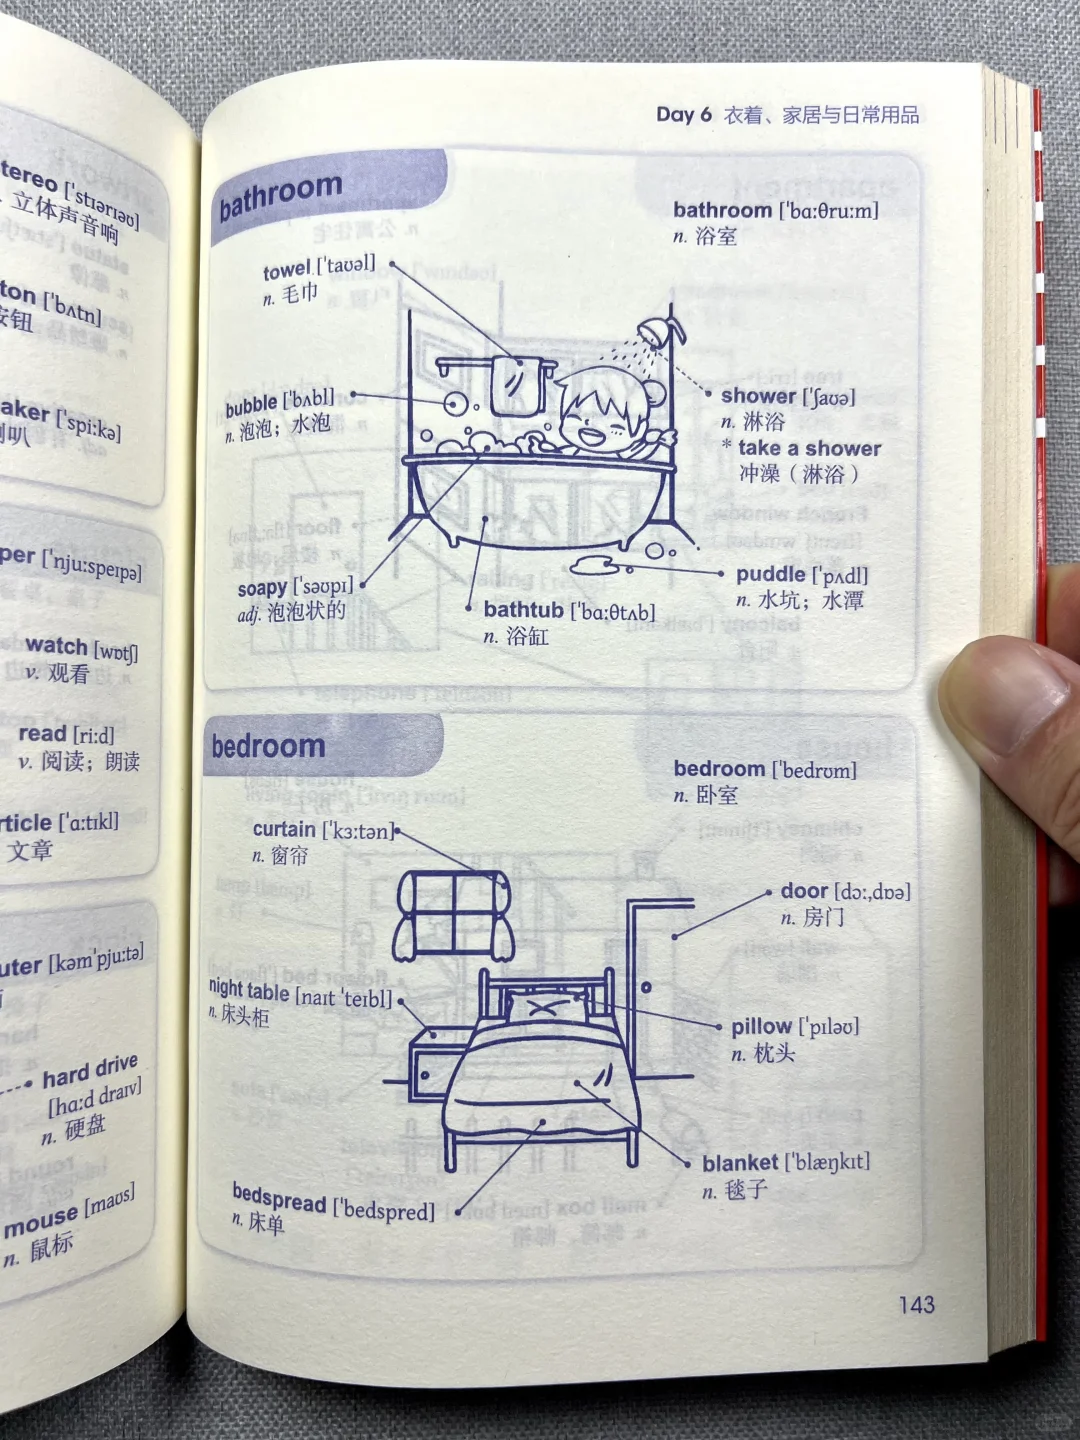 tereo ['stɪərɪəʊ]
立体声音响
ton ['bʌtn]
按钮
aker ['spi:kə]
喇叭
per ['nju:speɪpə]
watch [wɒtʃ]
v. 观看
read [ri:d]
v. 阅读；朗读
rticle ['ɑ:tɪkl]
文章
uter [kəm'pju:tə]
hard drive
[hɑ:d draɪv]
n. 硬盘
mouse [maʊs]
n. 鼠标
Day 6 衣着、家居与日常用品
bathroom
bathroom ['bɑ:θru:m]
n. 浴室
towel ['taʊəl]
n. 毛巾
bubble ['bʌbl]
n. 泡泡；水泡
shower ['ʃaʊə]
n. 淋浴
* take a shower
冲澡（淋浴）
soapy ['səʊpɪ]
adj. 泡泡状的
bathtub ['bɑ:θtʌb]
n. 浴缸
puddle ['pʌdl]
n. 水坑；水潭
bedroom
bedroom ['bedrʊm]
n. 卧室
curtain ['kɜ:tən]
n. 窗帘
door [dɔ:,dɒə]
n. 房门
night table [naɪt 'teɪbl]
n. 床头柜
pillow ['pɪləʊ]
n. 枕头
blanket ['blæŋkɪt]
n. 毯子
bedspread ['bedspred]
n. 床单
143